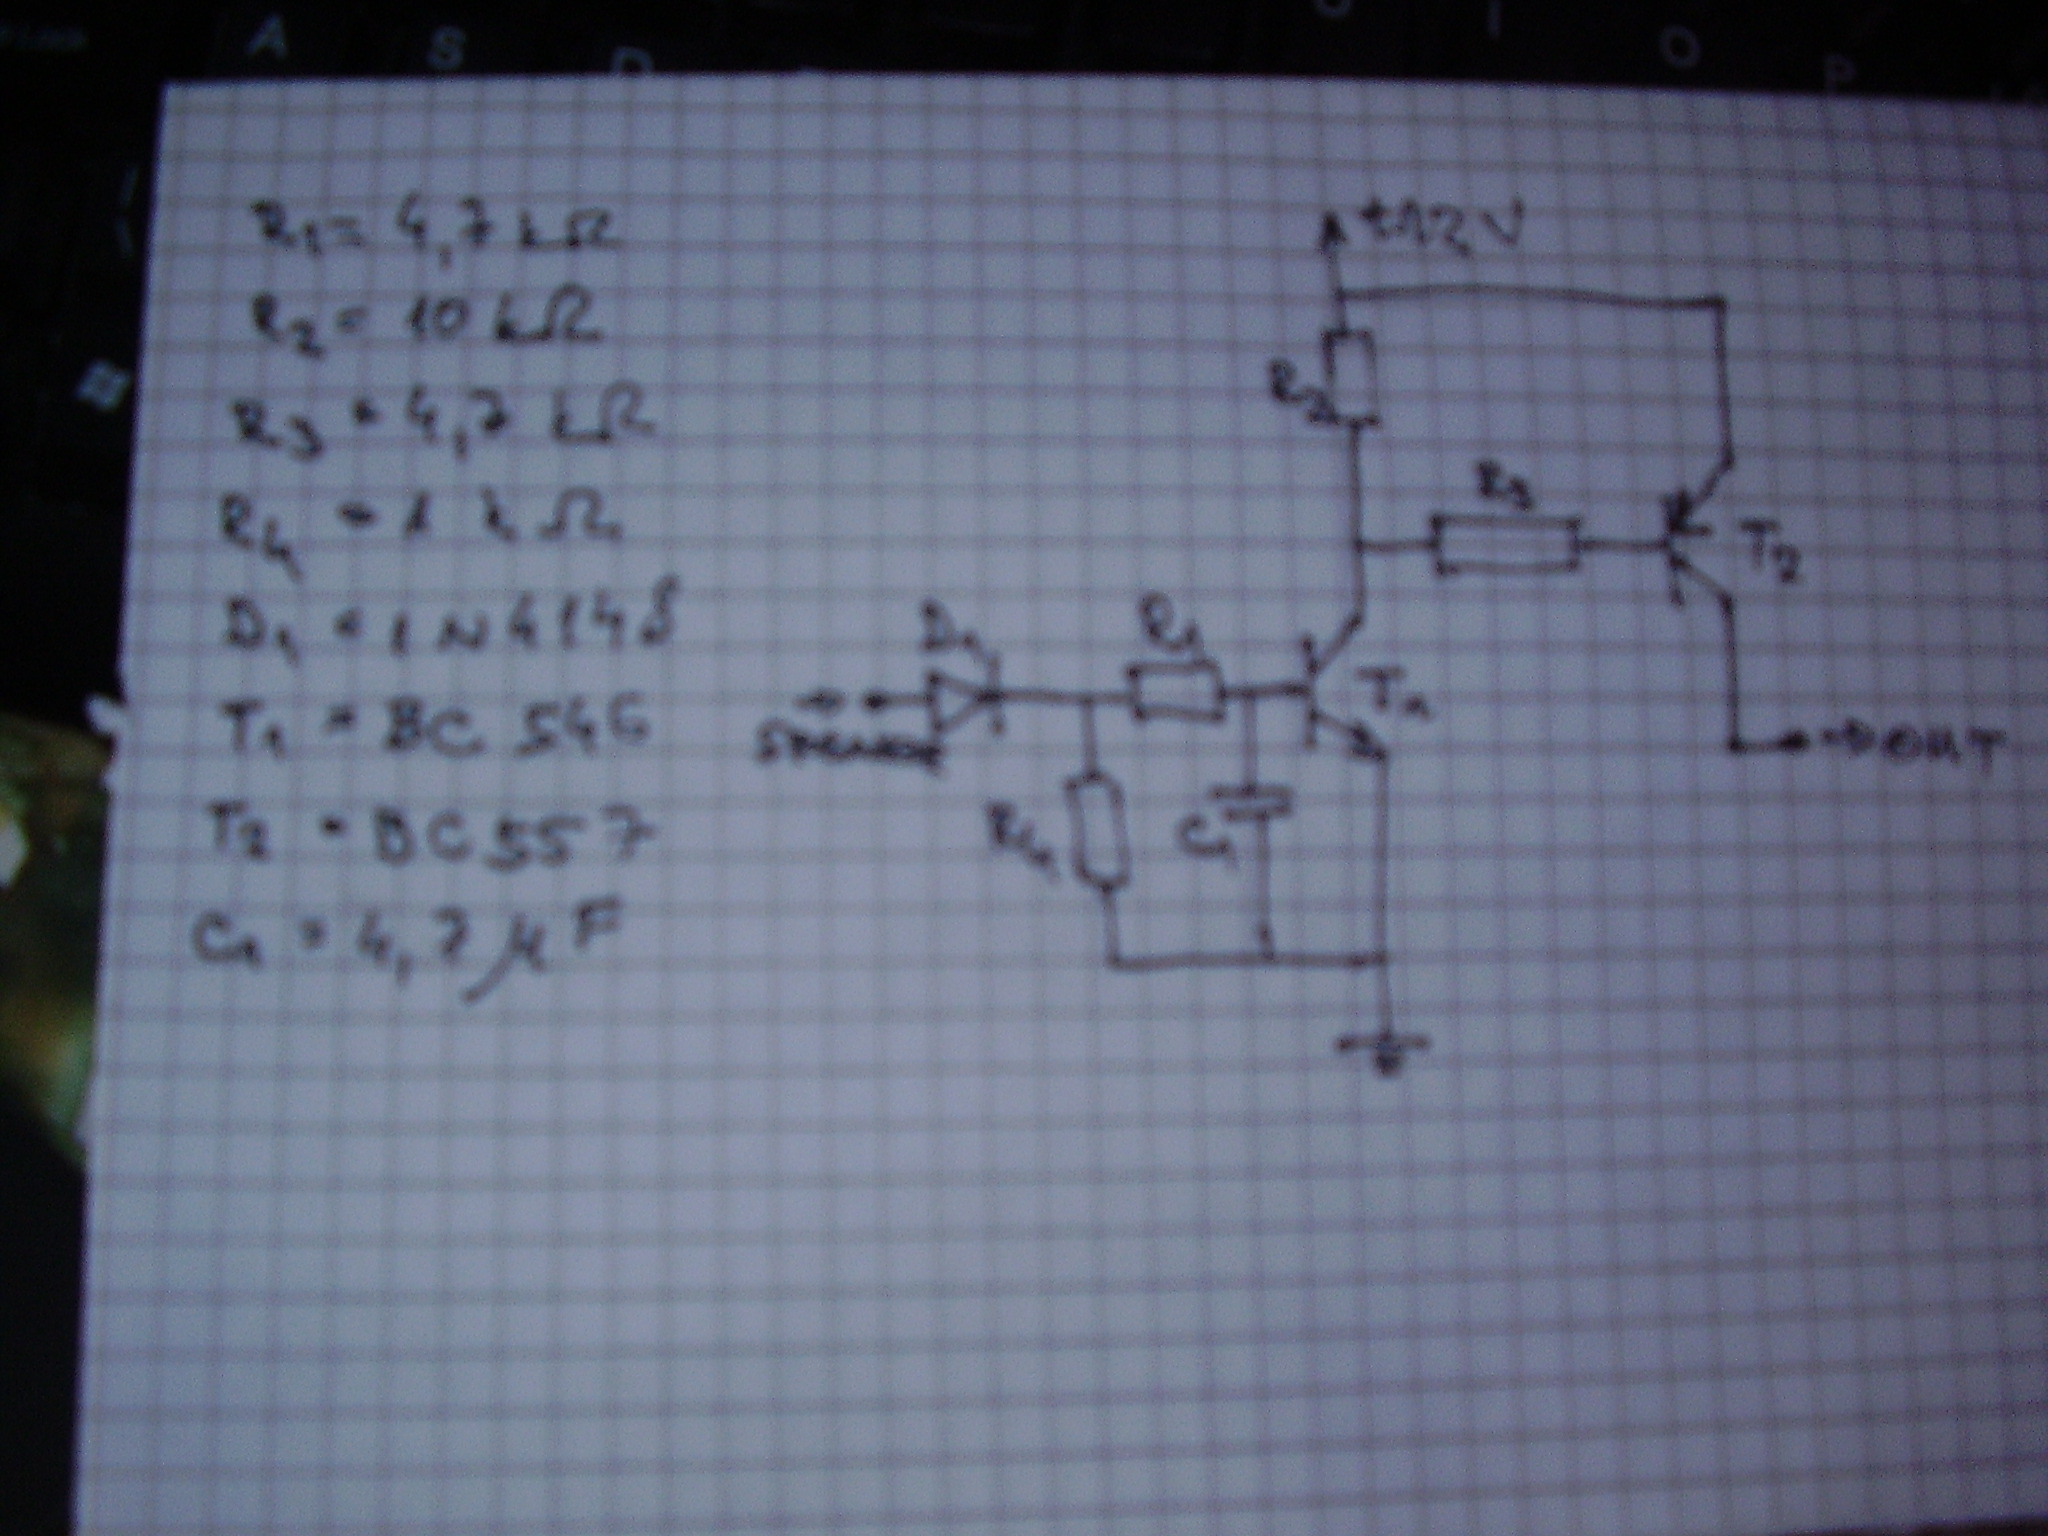 A S D I O P
R1 = 4,7 kΩ
R2 = 10 kΩ
R3 = 4,7 kΩ
R4 = 1 kΩ
D1 = 1N4148
T1 = BC 546
T2 = BC557
C1 = 4,7 µF
+12V
R2
R3
T2
D1
R1
T1
OUT
R4
C1